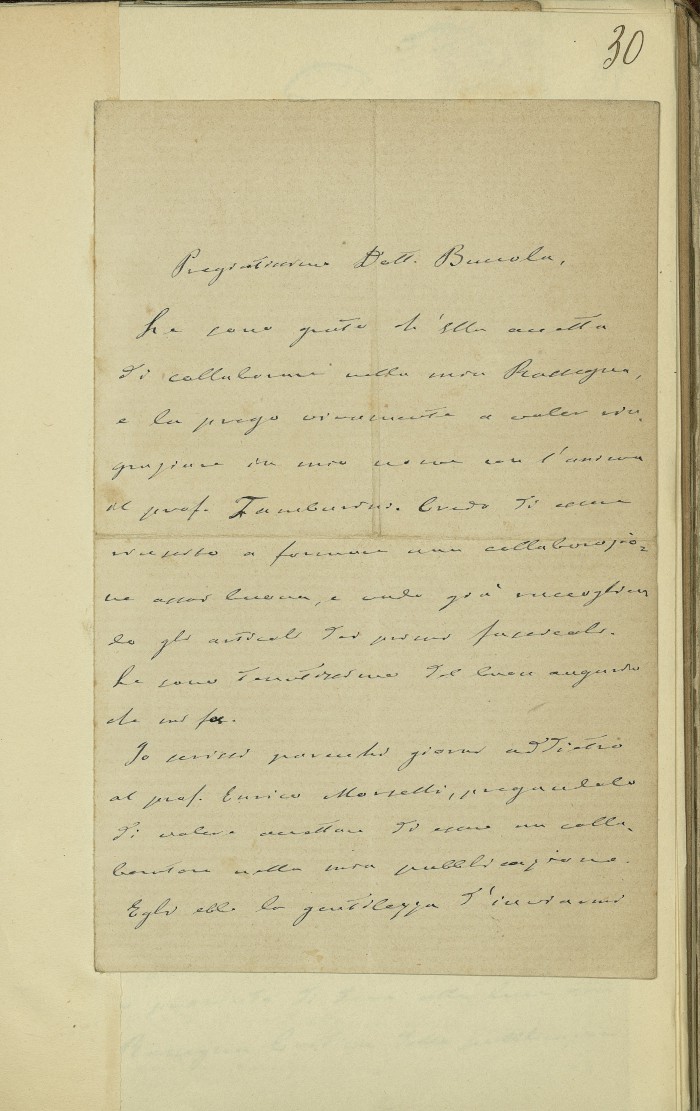 30
Pregiatissimo Dott. Buccola,
Le sono grato ch'Ella accetta
di collaborare nella mia Rassegna,
e la prego vivamente a voler rin-
graziare in mio nome con l'anima
il prof. Tamburini. Credo di essere
riuscito a formare una collaborazio=
ne assai buona, e vado già raccoglien
do gli articoli dei primi fascicoli.
Le sono tenutissimo del buon augurio
che mi fa.
Io scrissi parecchi giorni addietro
al prof. Enrico Morselli, pregandolo
di volere accettare di essere un colla-
boratore nella mia pubblicazione.
Egli ebbe la gentilezza d'inviarmi